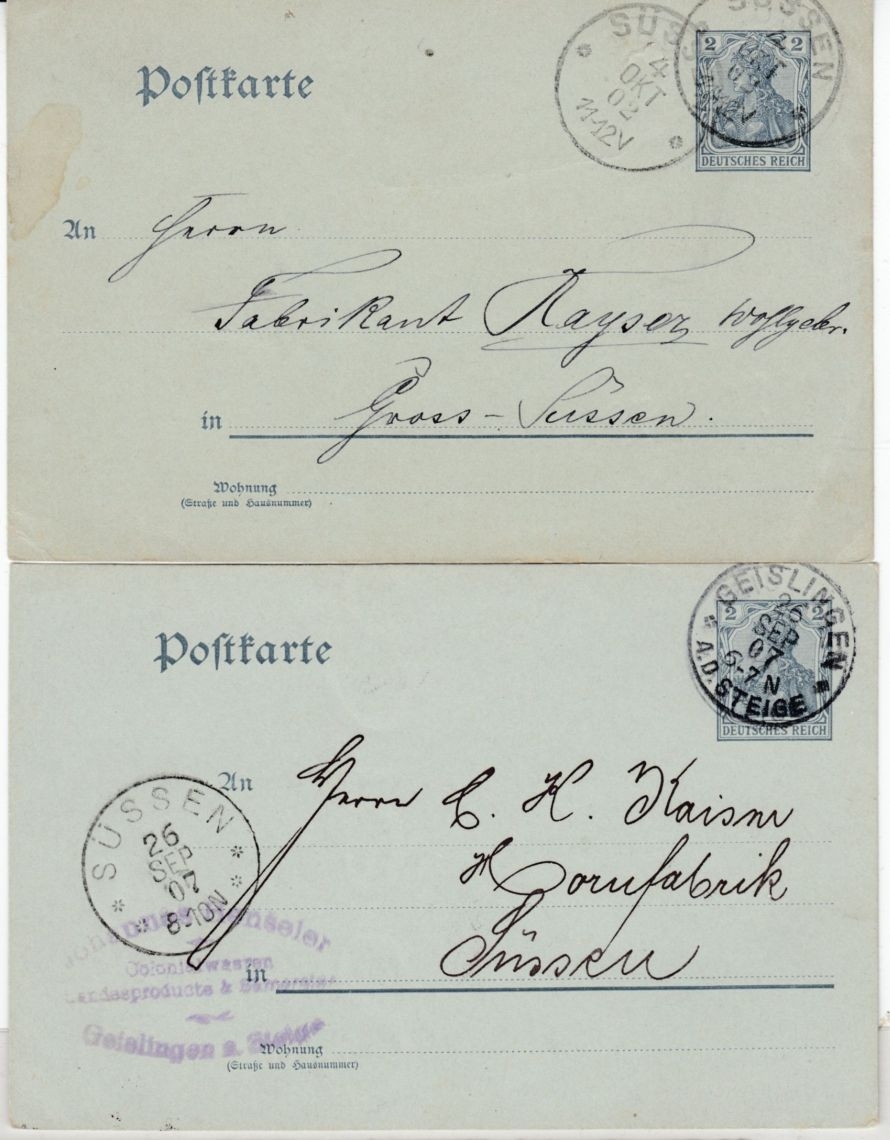 Postkarte
SÜSSEN
14
OKT
02
11-12V
SÜSSEN
OKT
02
2 2
DEUTSCHES REICH
An Herrn
Fabrikant Kayser wohlgebr.
in Gross-Süssen.
Wohnung
(Straße und Hausnummer)
Postkarte
GEISLINGEN
26
SEP
07
6-7 N
A.D. STEIGE
2 2
DEUTSCHES REICH
An Herrn C. H. Kaiser
Hornfabrik
in Süssen
SÜSSEN
26
SEP
07
8-10N
Johannes
Colonialwaaren
Landesproducte &
Geislingen a. Steige
Wohnung
(Straße und Hausnummer)